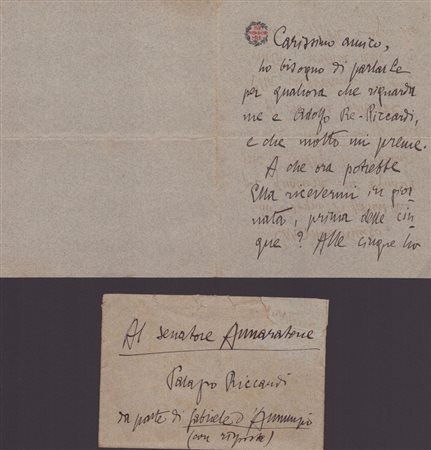 Carissimo amico,
ho bisogno di parlarLe
per qualcosa che riguarda
me e Adolfo Re-Riccardi,
e che molto mi preme.
A che ora potrebbe
Ella ricevermi in gior-
nata, prima delle cin-
que? Alle cinque ho
Al Senatore Annaratone
Palazzo Riccardi
da parte di Gabriele d'Annunzio
(con risposta)